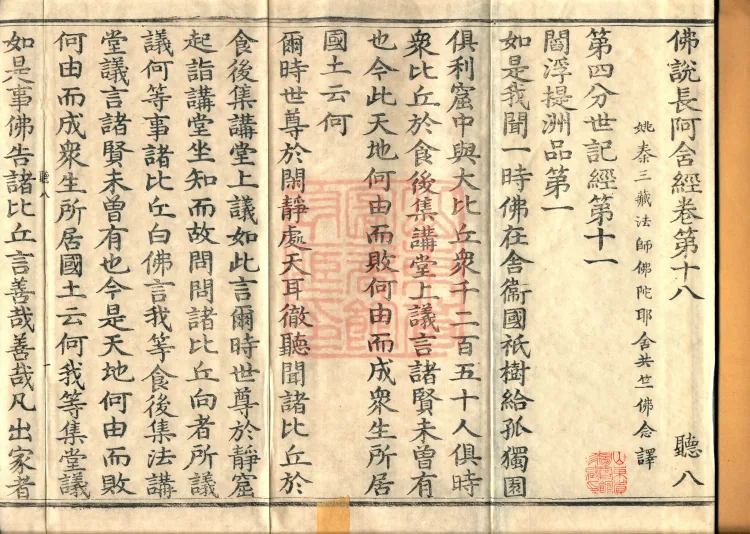 佛說長阿含經卷第十八 聽八
姚秦三藏法師佛陀耶舍共竺佛念譯
第四分世記經第十一
閻浮提洲品第一
如是我聞一時佛在舍衞國祇樹給孤獨園
俱利窟中與大比丘衆千二百五十人俱時
衆比丘於食後集講堂上議言諸賢未曾有
也今此天地何由而敗何由而成衆生所居
國土云何
爾時世尊於閑靜處天耳徹聽聞諸比丘於
食後集講堂上議如此言爾時世尊於靜窟
起詣講堂坐知而故問問諸比丘向者所議
議何等事諸比丘白佛言我等食後集法講
堂議言諸賢未曾有也今是天地何由而敗
何由而成衆生所居國土云何我等集堂議
聽八 一
如是事佛告諸比丘言善哉善哉凡出家者